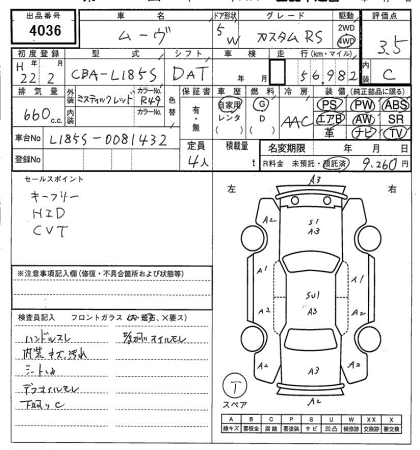 出品番号 車名 ドア形状 グレード 駆動 評価点
4036 ムーヴ 5W カスタム RS 2WD 4WD 3.5
初度登録 型式 シフト 車検 走行(km・マイル) 内装
H 22年 2月 CBA-L185S DAT 年 月 56,982 C
排気量 外装 カラーNo. 色替 保証書 車歴 燃料 冷房 装備(純正部品に限る)
660c.c. ミスティックレッド R49 有・無 自家用 レンタ G D AAC PS PW ABS
内装 カラーNo. エアB AW SR
( ) 革 ナビ TV
車台No L185S-0081432 定員 積載量 名変期限 年 月 日
登録No 4人 t R料金 未預託・預託済 9,260円
セールスポイント 左 右
キーフリー
HID
CVT
A3
A2 A2
S1
A3
A1 A1
A2 A2
SU1
A3
A3
A2
※注意事項記入欄(修復・不具合箇所および状態等)
検査員記入 フロントガラス
ハンドルスレ
内装キズ、汚れ
デフオイルモレ
下廻りC
T
スペア
A B C P S U W X XX
線キズ 要板金 腐蝕 要塗装 サビ 凹凸 補修跡 要交換 交換済